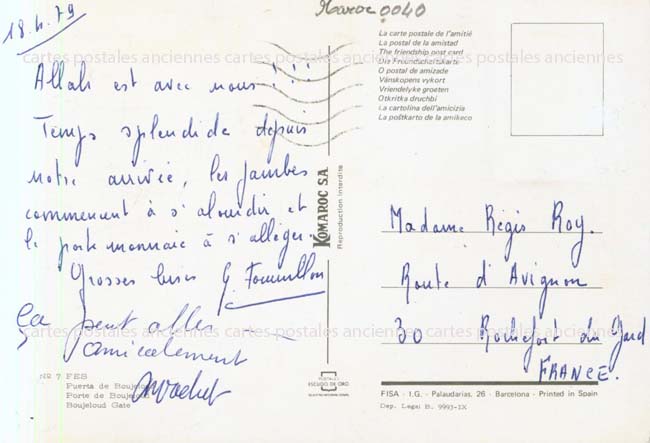 Maroc 0040
18.4.79
Allah est avec nous !!!
Temps splendide depuis
notre arrivée, les jambes
commencent à s'alourdir et
le porte monnaie à s'alléger.
Grosses bises G.
ça peut aller
amicalement
Nº 7 FES
Puerta de Boujeloud
Porte de Boujeloud
Boujeloud Gate
KOMAROC S.A.
Reproduction Interdite
ESCUDO DE ORO
La carte postale de l'amitié
La postal de la amistad
The friendship post card
Die Freundschaftskarte
O postal de amizade
Vänskopens vykort
Vriendelyke groeten
Otkritka druchbi
La cartolina dell'amicizia
La poŝtkarto de la amikeco
Madame Régis Roy.
Route d'Avignon
30 Rochefort du Gard
FRANCE.
FISA - I.G. - Palaudarias, 26 - Barcelona - Printed in Spain
Dep. Legal B. 9993-IX
cartes postales anciennes cartes postales anciennes cartes postales anciennes
cartes postales anciennes cartes postales anciennes cartes postales anciennes